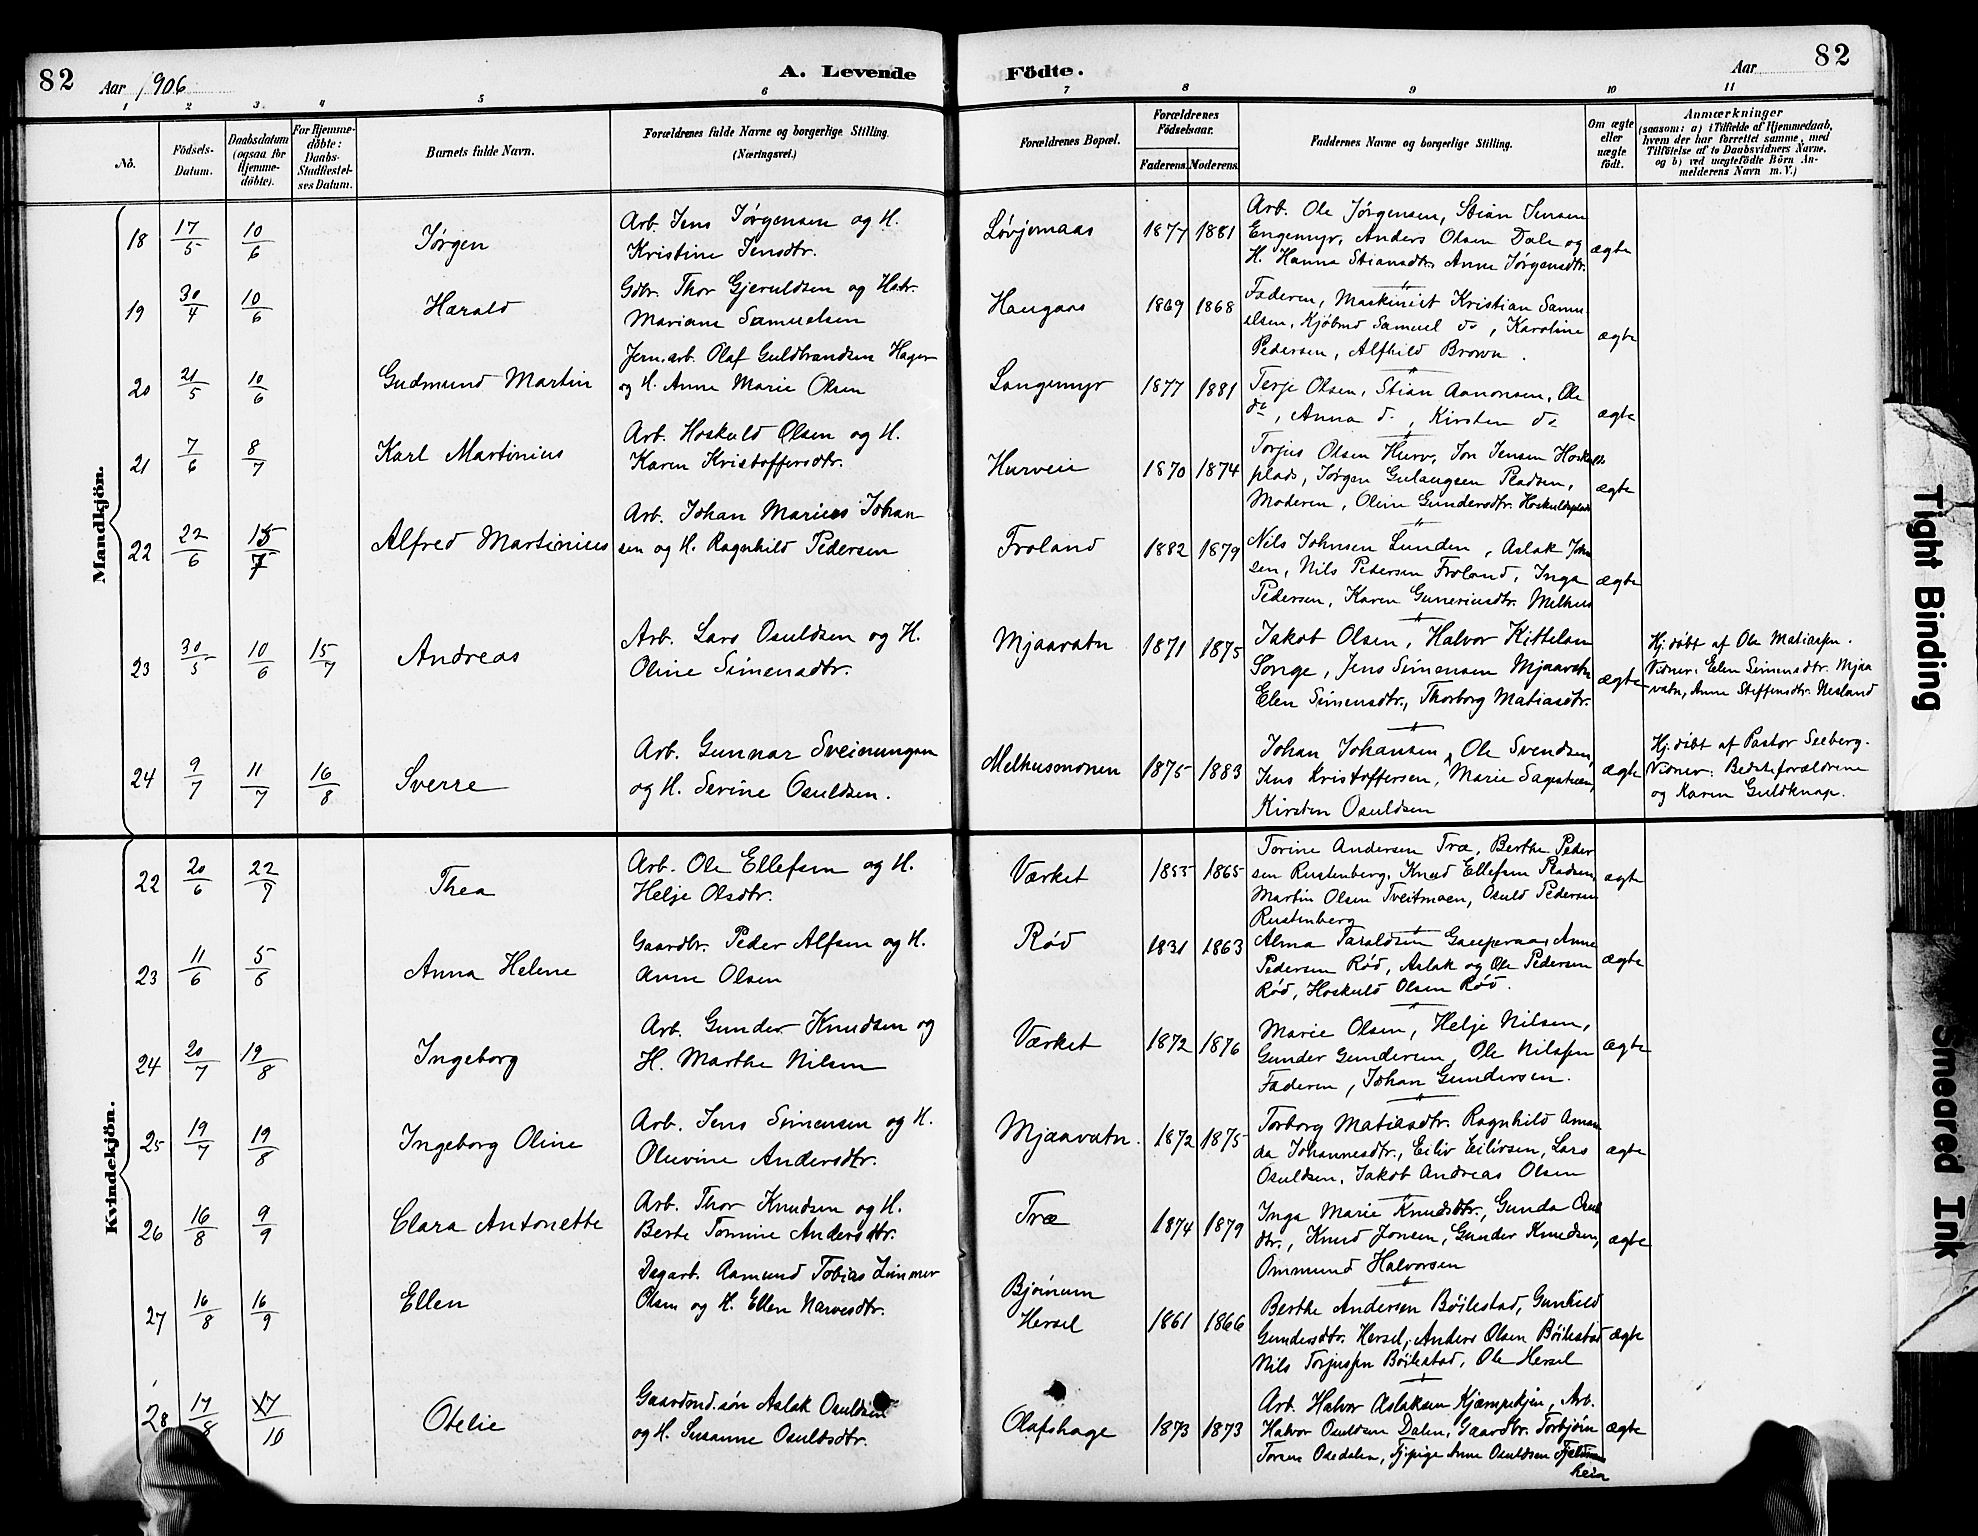 82
Aar 1906
A. Levende
Födte.
Aar
82
1 2 3 4 5 6 7 8 9 10 11
No.
Födsels-
Datum.
Daabsdatum
(ogsaa for
Hjemme-
döbte).
For Hjemme-
döbte:
Daabs-
Stadfæstel-
ses Datum.
Barnets fulde Navn.
Forældrenes fulde Navne og borgerlige Stilling.
(Næringsvei.)
Forældrenes Bopæl.
Forældrenes
Födselsaar.
Faderens. Moderens.
Faddernes Navne og borgerlige Stilling.
Om ægte
eller
uægte
født.
Anmærkninger
(saasom: a) i Tilfælde af Hjemmedaab,
hvem der har forrettet samme, med
Tilföielse af to Daabsvidners Navne,
og b) ved uægtefödte Börn An-
melderens Navn m. V.)
Mandkjön.
18 17/5 10/6 Jørgen
Arb. Jens Jørgensen og H.
Kristine Jensdtr.
Løvjomaas 1877 1881
Arb. Ole Jørgensen, Stian Jensen
Engemyr, Anders Olsen Dale og
H. Hanna Stiansdtr. Anne Jørgensdtr.
ægte
19 30/4 10/6 Harald
Gdbr. Thor Gjeruldsen og Hstr.
Mariane Samuelsen
Haugaas 1869 1868
Faderen, Maskinist Kristian Samu
elsen, Kjöbmd Samuel do, Karoline
Pedersen, Alfhild Brown.
ægte
20 21/5 10/6 Gudmund Martin
Jern.arb. Olaf Guldbrandsen Hagen
og H. Anne Marie Olsen
Langemyr 1877 1881
Terje Olsen, Stian Aanonsen, Ole
do, Anna do, Kirsten do
ægte
21 7/6 8/7 Karl Martinius
Arb. Hoskuld Olsen og H.
Karen Kristoffersdtr.
Hurveie 1870 1874
Torjus Olsen Hurv, Jon Jensen Hoskulds
plads, Jørgen Gulaugsen Pladsen,
Moderen, Oline Gundersdtr. Hoskuldsplads
ægte
22 22/6 15/7 Alfred Martinius
Arb. Johan Marius Johan
sen og H. Ragnhild Pedersen
Froland 1882 1879
Nils Johnsen Lunden, Aslak John
sen, Nils Pedersen Froland, Inga
Pedersen, Karen Guneriusdtr. Melhus
ægte
23 30/5 10/6 15/7 Andreas
Arb. Lars Osuldsen og H.
Oline Simensdtr.
Mjaavatn 1871 1875
Jakob Olsen, Halvor Kittelsen
Songe, Jens Simensen Mjaavatn
Elen Simensdtr., Thorborg Matiasdtr.
ægte
Hj.døbt af Ole Matiassen.
Vidner: Elen Simensdtr. Mjaa
vatn, Anne Steffensdtr. Nesland
24 9/7 11/7 16/8 Sverre
Arb. Gunnar Sveinungsen
og H. Serine Osuldsen.
Melhusmonen 1875 1883
Johan Johansen, Ole Svendsen,
Jens Kristoffersen, Marie Sagstuen,
Kirsten Osuldsen
ægte
Hj.döbt af Pastor Seeberg.
Vidner: Bedsteforældrene
og Karen Guldknap.
Kvindekjön.
22 20/6 22/7 Thea
Arb. Ole Ellefsen og H.
Helje Olsdtr.
Værket 1855 1865
Torine Andersen Træ, Berthe Peder
sen Rustenberg, Knud Ellefsen Pladsen,
Martin Olsen Tveitmoen, Osuld Pedersen
Rustenberg
ægte
23 11/6 5/8 Anna Helene
Gaardbr. Peder Alfsen og H.
Anne Olsen
Rød 1831 1863
Alma Taraldsen Gauperaas, Anne
Pedersen Rød, Aslak og Ole Pedersen
Rød, Hoskuld Olsen Rød.
ægte
24 20/7 19/8 Ingeborg
Arb. Gunder Knudsen og
H. Marthe Nilsen
Værket 1872 1876
Marie Olsen, Helje Nilsen,
Gunder Gundersen, Ole Nilssen
Faderen, Johan Gundersen.
ægte
25 19/7 19/8 Ingeborg Oline
Arb. Jens Simensen og H.
Olevine Andersdtr.
Mjaavatn. 1872 1875
Torborg Matiasdtr. Ragnhild Aman
da Johannesdtr., Eiliv Eilivsen, Lars
Osuldsen, Jakob Andreas Olsen
ægte
26 16/8 9/9 Clara Antonette
Arb. Thor Knudsen og H.
Berte Tomine Andersdtr.
Træ 1874 1879
Inga Marie Knudsdtr., Gunda Osul
dtr., Knud Jonsen, Gunder Knudsen,
Ommund Halvorsen
ægte
27 16/8 16/9 Ellen
Dagarb. Aamund Tobias Zimmer
Olsen og H. Ellen Narvesdtr.
Bjørnum
Hersel 1861 1866
Berthe Andersen Böilestad, Gunhild
Gundersdtr. Hersel, Anders Olsen Böilestad
Nils Torjussen Böilestad, Ole Hersel
ægte
28 17/8 7/10 Otelie
Gaardmd.søn Aslak Osuldsen
og H. Susanne Osuldsdtr.
Olafshage 1873 1873
Arb. Halvor Aslaksen Kjæmpekjen, Arb.
Halvor Osuldsen Dalen, Gaardbr. Torbjörn
Torsen Osedalen, Tjpige Anne Osuldsen
heia
ægte
Tight Binding
Smeared Ink